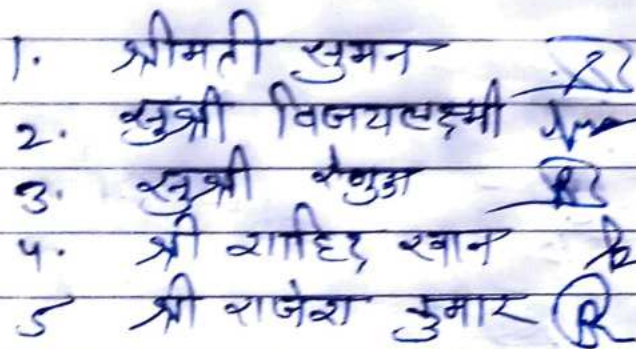 1. श्रीमती सुमन
2. सुश्री विजयलक्ष्मी
3. सुश्री
4. श्री शाहिद खान
5 श्री राजेश कुमार